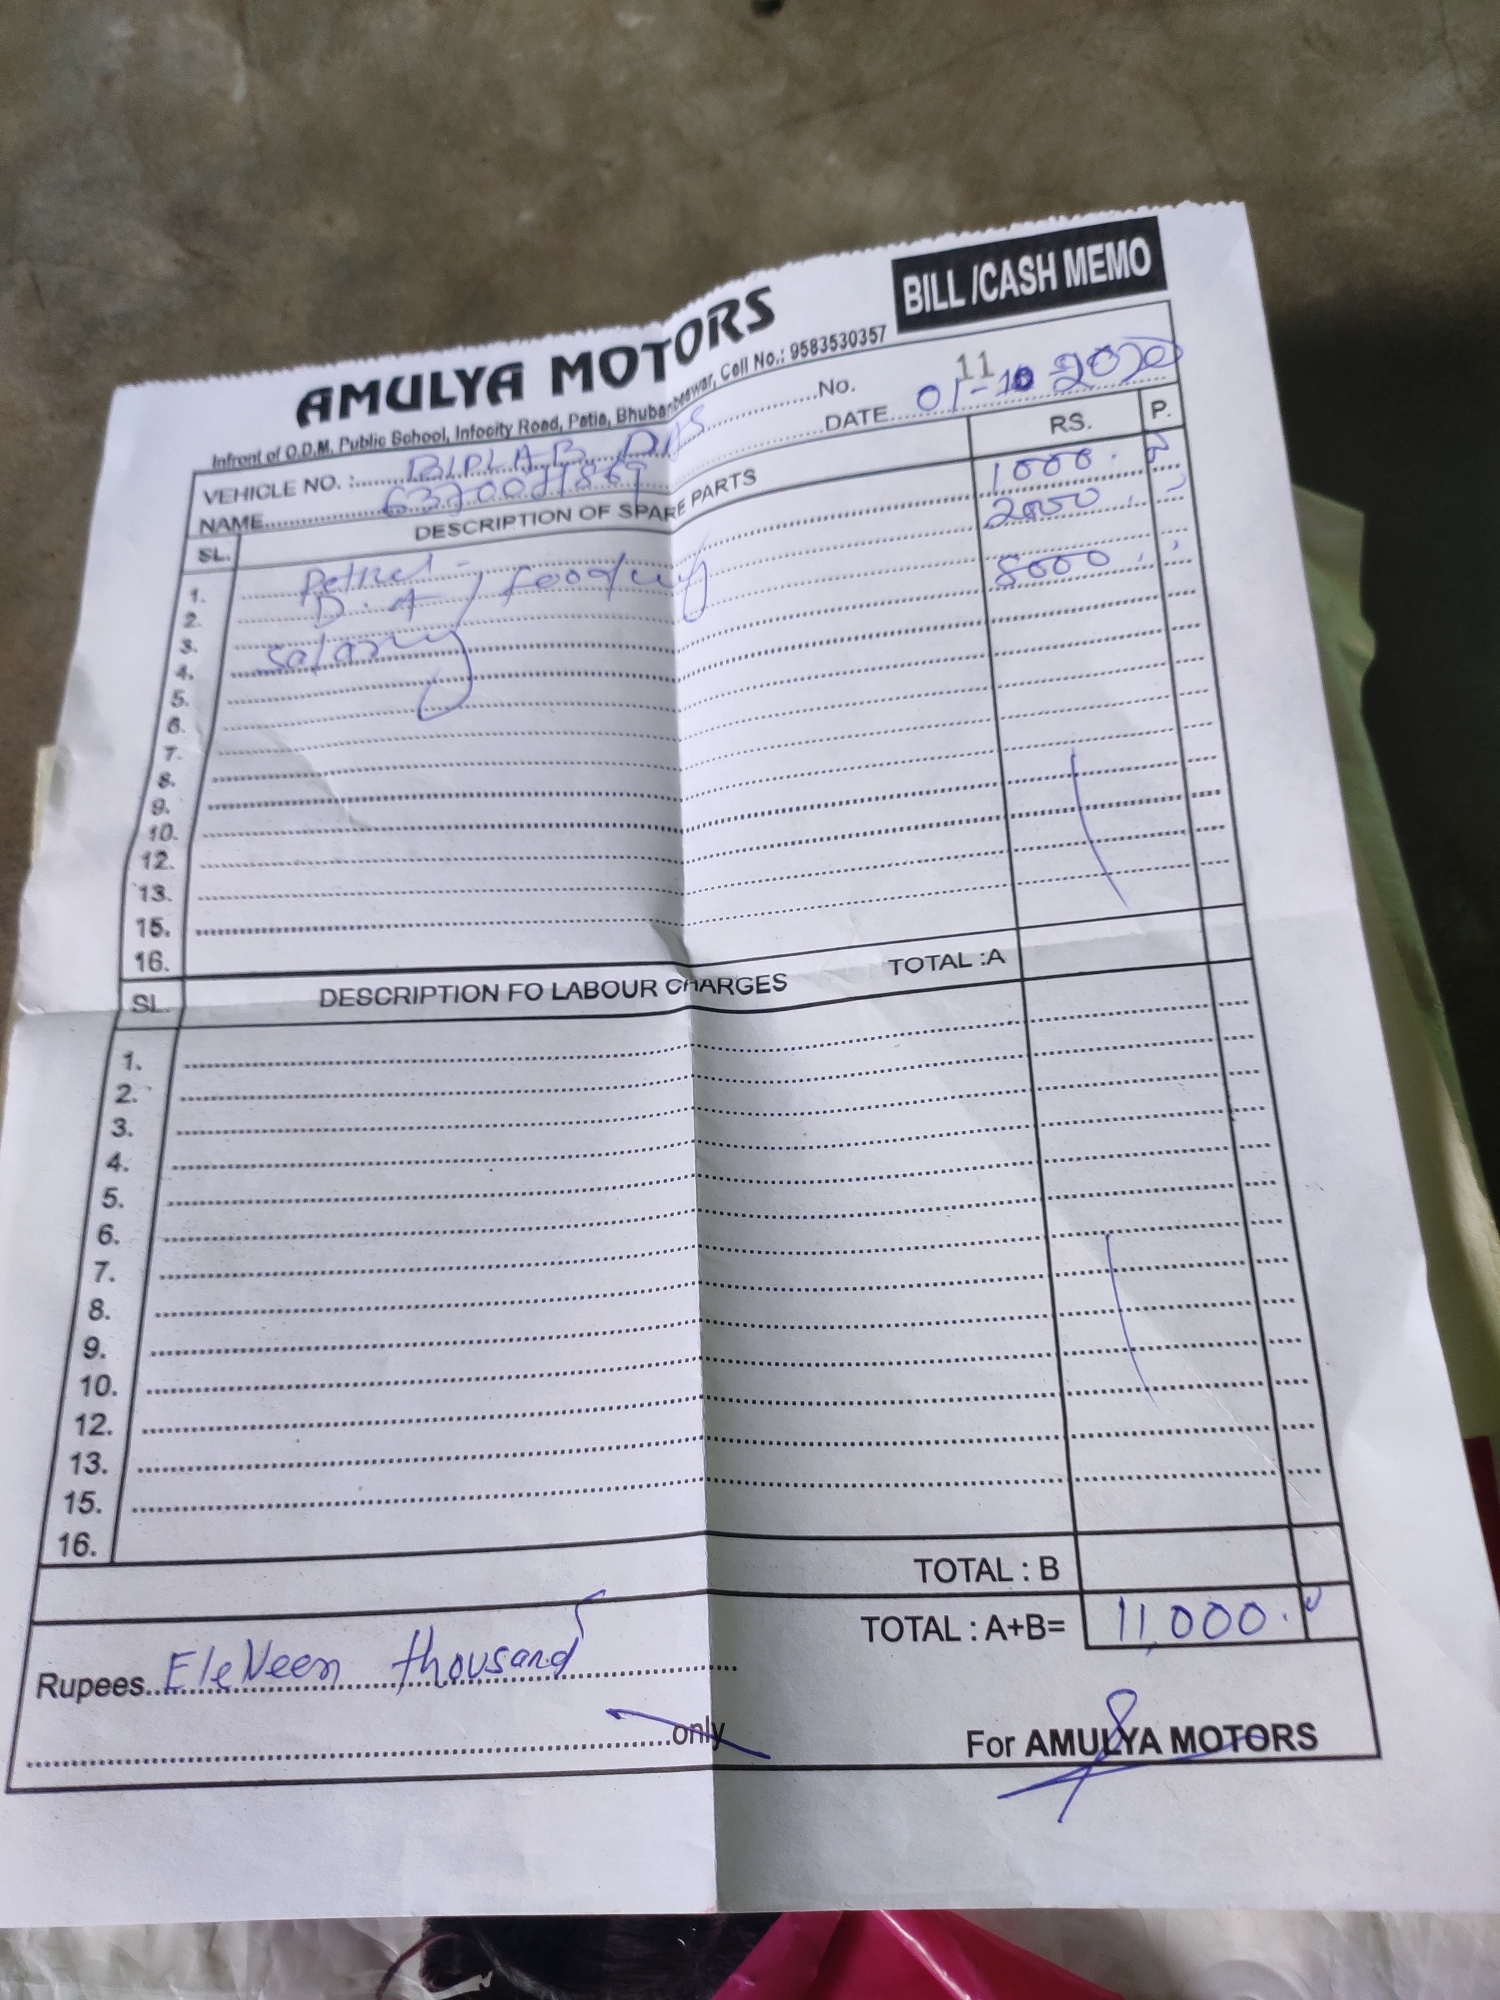 BILL /CASH MEMO
AMULYA MOTORS
Infront of O.D.M. Public School, Infocity Road, Patia, Bhubaneswar, Cell No.: 9583530357
No. 11
VEHICLE NO. : BIPLAB DAS DATE 01-10 2020
NAME
SL. DESCRIPTION OF SPARE PARTS RS. P.
1. Petrol - 1000
2. D.A / 2000
3. Salary 8000
4.
5.
6.
7.
8.
9.
10.
12.
13.
15.
16. TOTAL :A
SL. DESCRIPTION FO LABOUR CHARGES
1.
2.
3.
4.
5.
6.
7.
8.
9.
10.
12.
13.
15.
16.
TOTAL : B
TOTAL : A+B= 11,000.
Rupees EleVeen thousand
only For AMULYA MOTORS